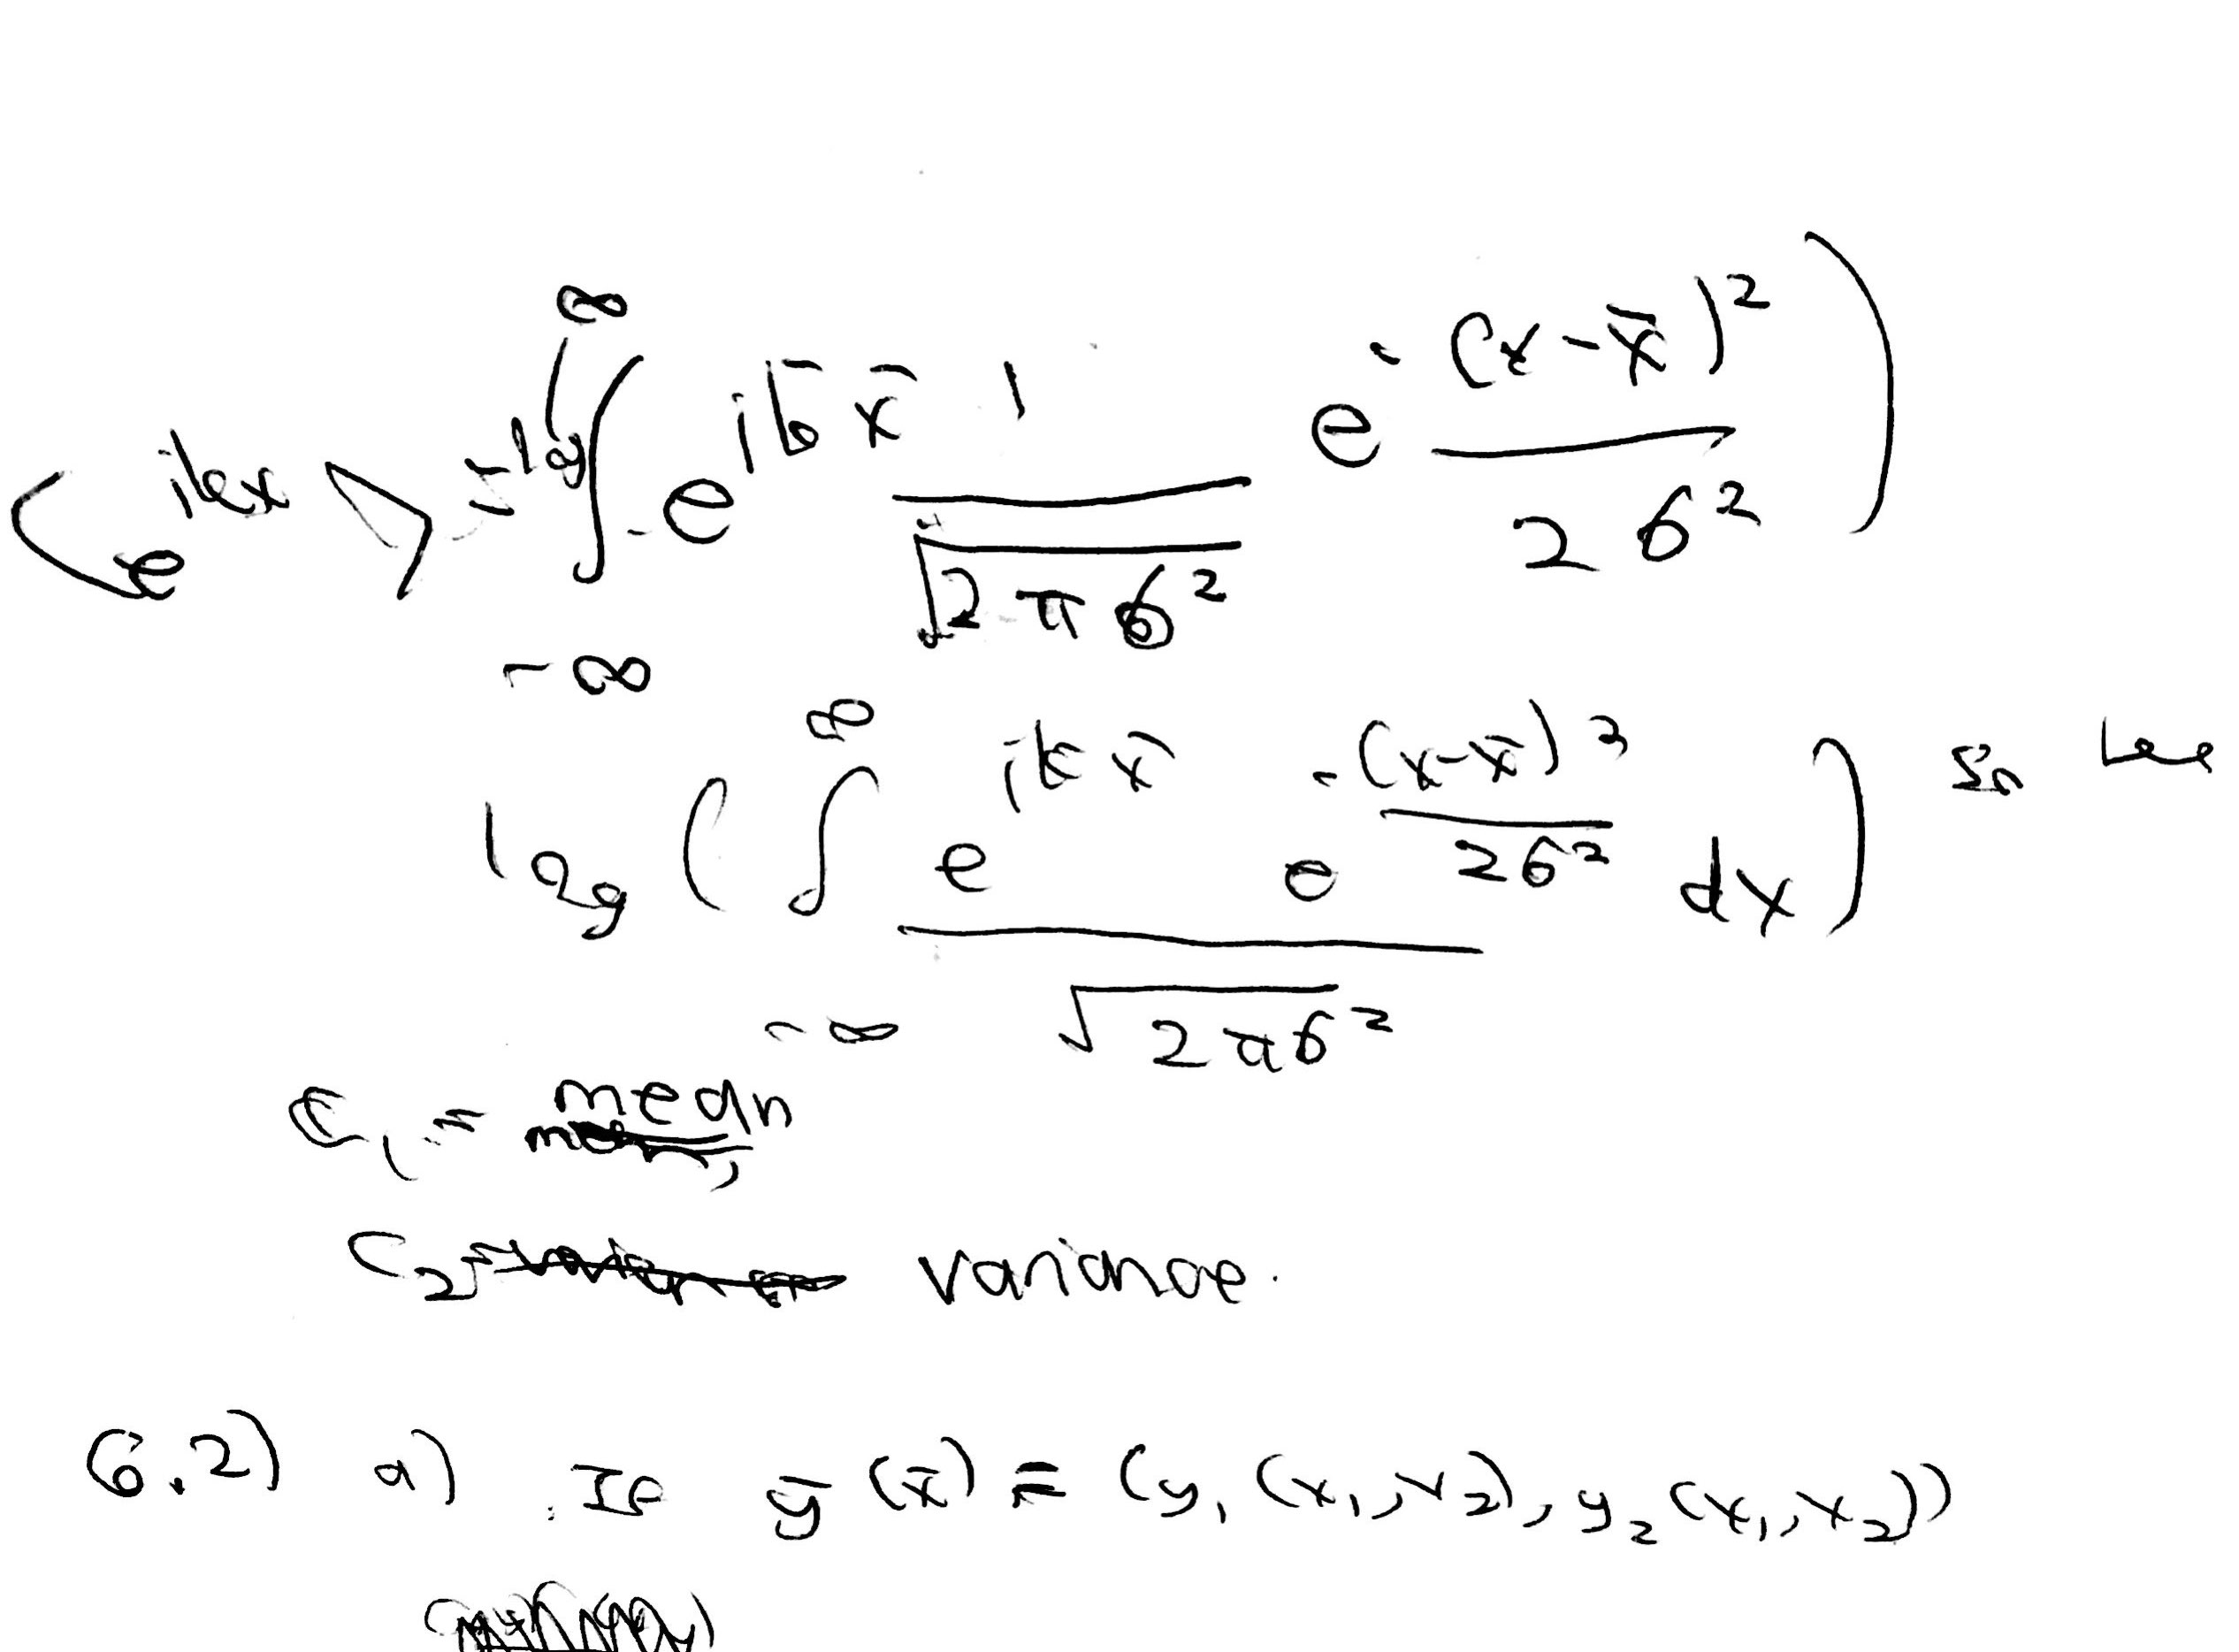 ⟨e^{ikx}⟩ = log ∫_{-∞}^{∞} e^{i k̄ x̄} \frac{1}{\sqrt{2πσ²}} e^{-\frac{(x-x̄)²}{2σ²}} )
log ( ∫_{-∞}^{∞} \frac{e^{i k̄ x̄} e^{-\frac{(x-x̄)²}{2σ²}}}{\sqrt{2πσ²}} dx )
C₁ = mean
C₂ = variance.
6.2) a) If ȳ (x̄) = (y₁ (x₁, x₂), y₂ (x₁, x₂))